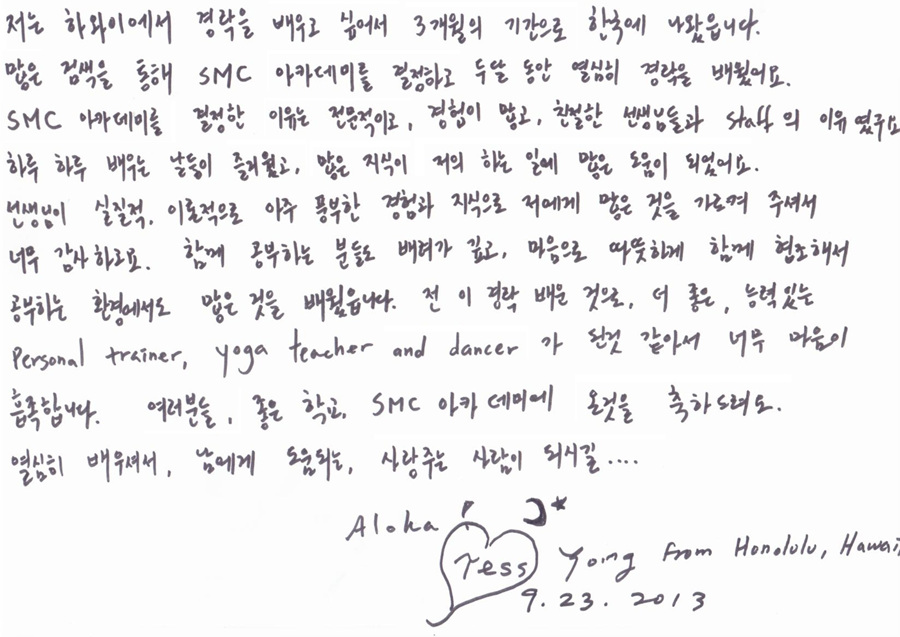 저는 하와이에서 경락을 배우고 싶어서 3개월의 기간으로 한국에 나왔읍니다.
많은 검색을 통해 SMC 아카데미를 결정하고 두달 동안 열심히 경락을 배웠어요.
SMC 아카데미를 결정한 이유는 전문적이고, 경험이 많고, 친절한 선생님들과 staff의 이유였구요
하루 하루 배우는 날들이 즐거웠고, 많은 지식이 저의 하는 일에 많은 도움이 되었어요.
선생님이 실질적, 이론적으로 아주 풍부한 경험과 지식으로 저에게 많은 것을 가르켜 주셔서
너무 감사하고요. 함께 공부하는 분들도 배려가 깊고, 마음으로 따뜻하게 함께 협조해서
공부하는 환경에서도 많은 것을 배웠읍니다. 전 이 경락 배운 것으로, 더 좋은, 능력있는
personal trainer, yoga teacher and dancer 가 된것 같아서 너무 마음이
흡족합니다. 여러분들, 좋은 학교, SMC 아카데미에 온것을 축하드려요.
열심히 배우셔서, 남에게 도움되는, 사랑주는 사람이 되시길....
Aloha
Tess Yoing from Honolulu, Hawaii
9. 23. 2013